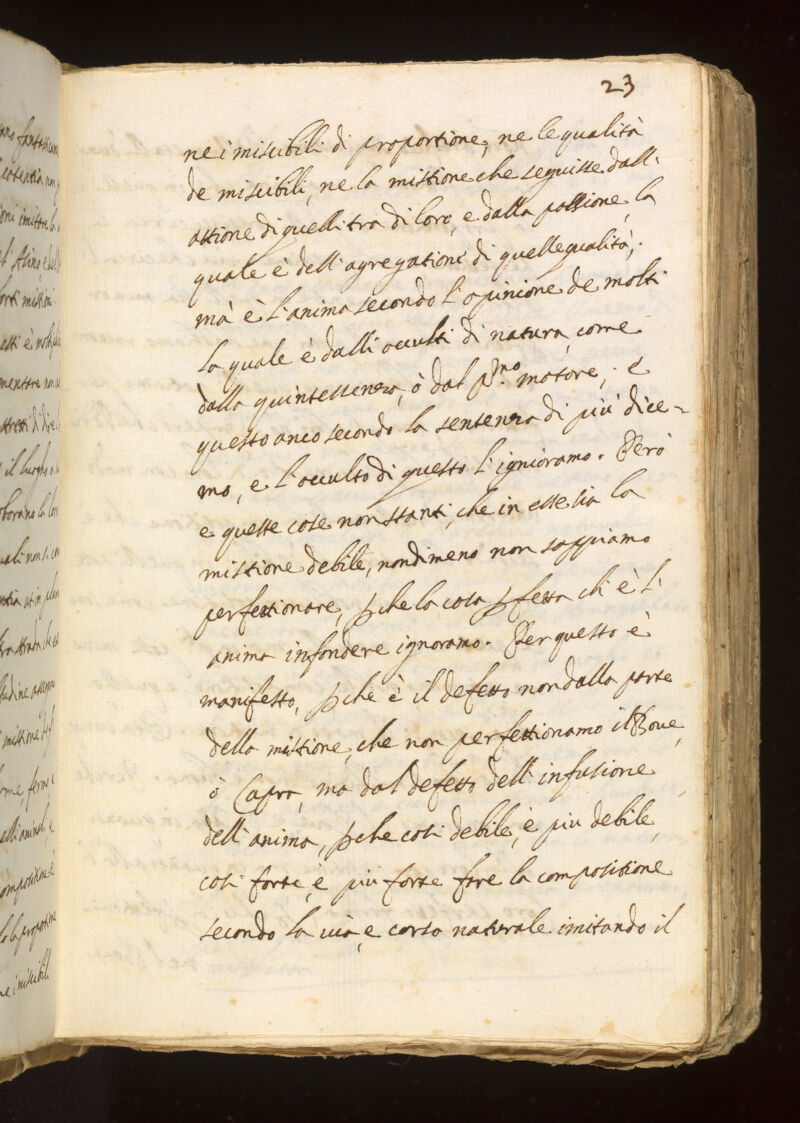 23
ne i miscibili di proportione, ne le qualità
de miscibili, ne la mistione che seguisse dall'
attione di quelli tra di loro, e dalla passione, la
quale è dell'agregatione di quelle qualità;
mà è l'anima secondo l'opinione de molti
la quale è dalli occulti di natura, come
dalla quintessenza, ò dal p.mo motore, e
questo anco secondo la sentenza di più dice-
mo, e l'occulto di questo l'ignioramo. Però
e queste cose non stanti, che in esse sia la
mistione debile, nondimeno non sappiamo
perfettionare, pche la cosa pfetta chi è l'
anima infondere ignoramo. Per questo è
manifesto, pche è il defetto non dalla parte
della mistione, che non perfettionamo il Bove,
ò Capra, ma dal defetto dell'infusione
dell'anima, pche cosi debile, e piu debile,
cosi forte, e più forte fare la compositione
secondo la via, e corso naturale imitando il